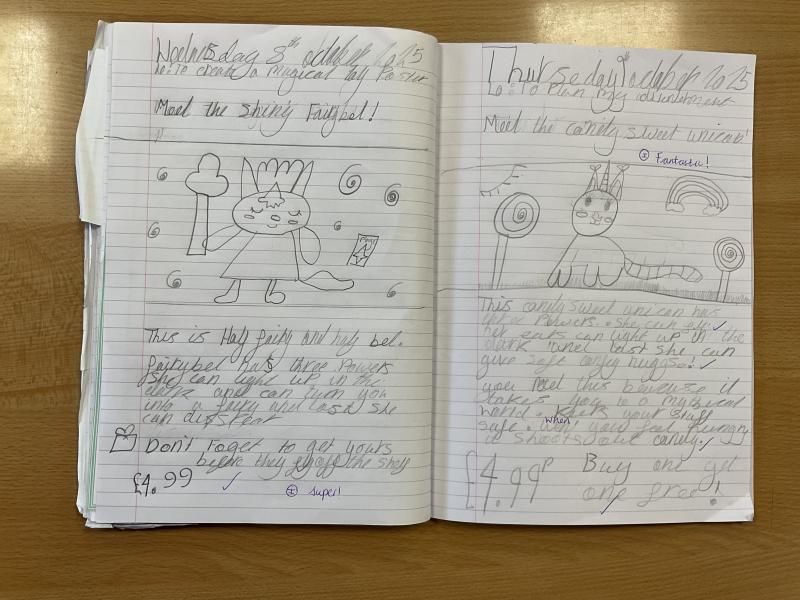 Wednesday 8th October 2025
Lo: To create a magical toy Poster
Meet the shiny Fairybel!
This is Half fairy and half bel.
fairybel has three Powers
She can light up in the
dark and can turn you
into a fairy and last she
can
Don't foget to get yours
before they off the shelf
£4.99
Super!
Thurseday October 2025
Lo: To Plan my
Meet the candy sweet unicab!
Fantastic!
This candy sweet unican has
Powers. She can fly.
her ears can light up in the
dark and last she can
give safe huggs!
you need this becuase it
takes you to a
world. Keeps your stuff
safe. when you feel hungry
it shoots out candy.
£4.99p Buy one get
one free!